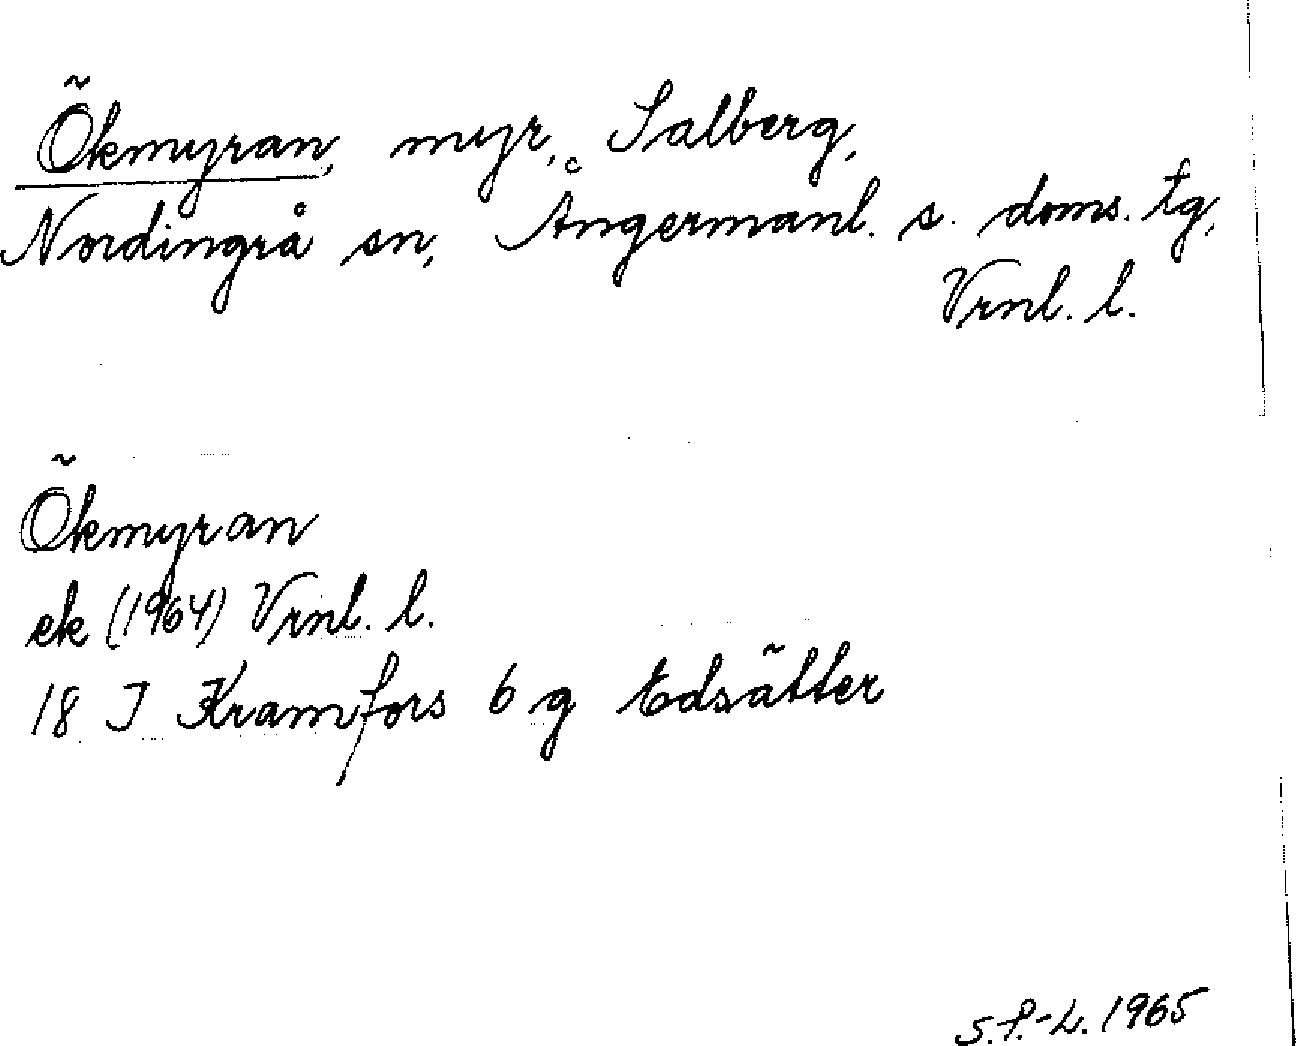 Ökmyran, myr, Salberg,
Nordingrå sn, Ångermanl. s. doms. tg,
Vrnl. l.
Ökmyran
ek (1964) Vrnl. l.
18 I Kramfors 6 g Edsätter
S.P.-L. 1965